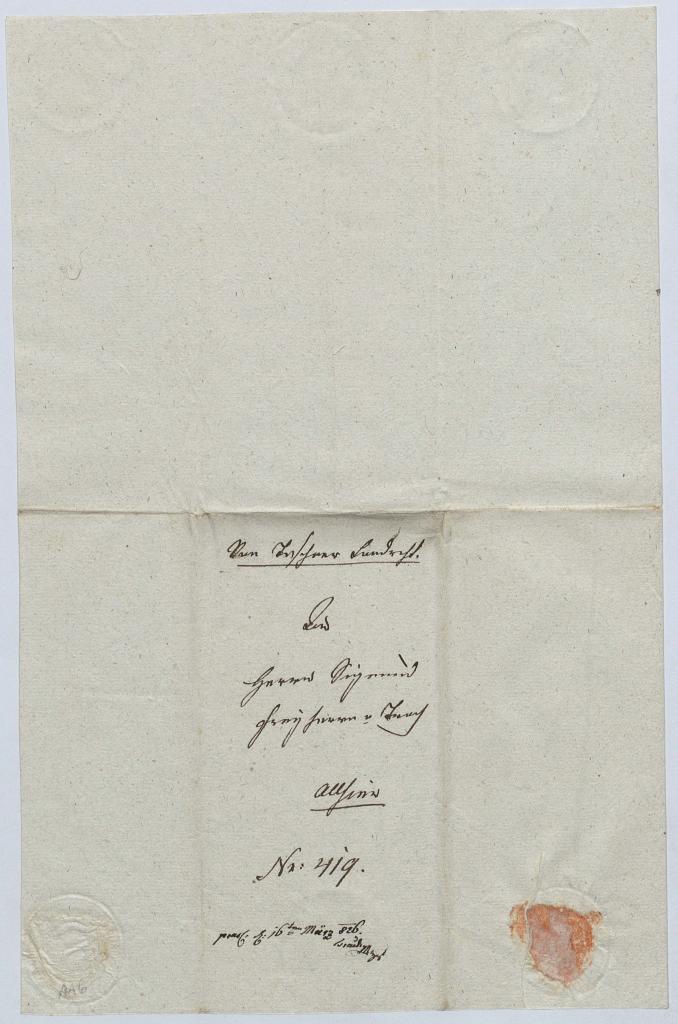 Von Teschner Landrecht.
An
Herrn Sigmund
Freyherrn v
Allhier
Nr: 419.
praes: 16ten März 826.
AA6